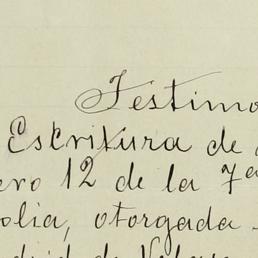 Testimo
Escritura de
ero 12 de la 7ª
olia, otorgada
drid de